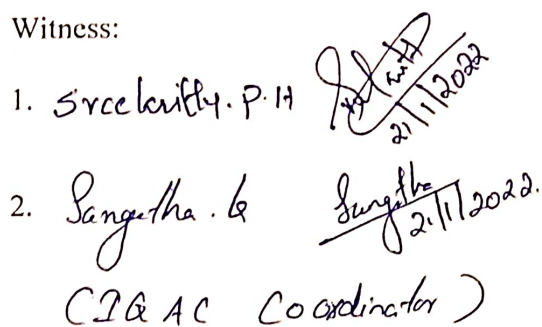 Witness:
1. Sreekritty. P. H 21/1/2022
2. Sangetha. G Sangetha 21/1/2022.
(IQAC Coordinator)